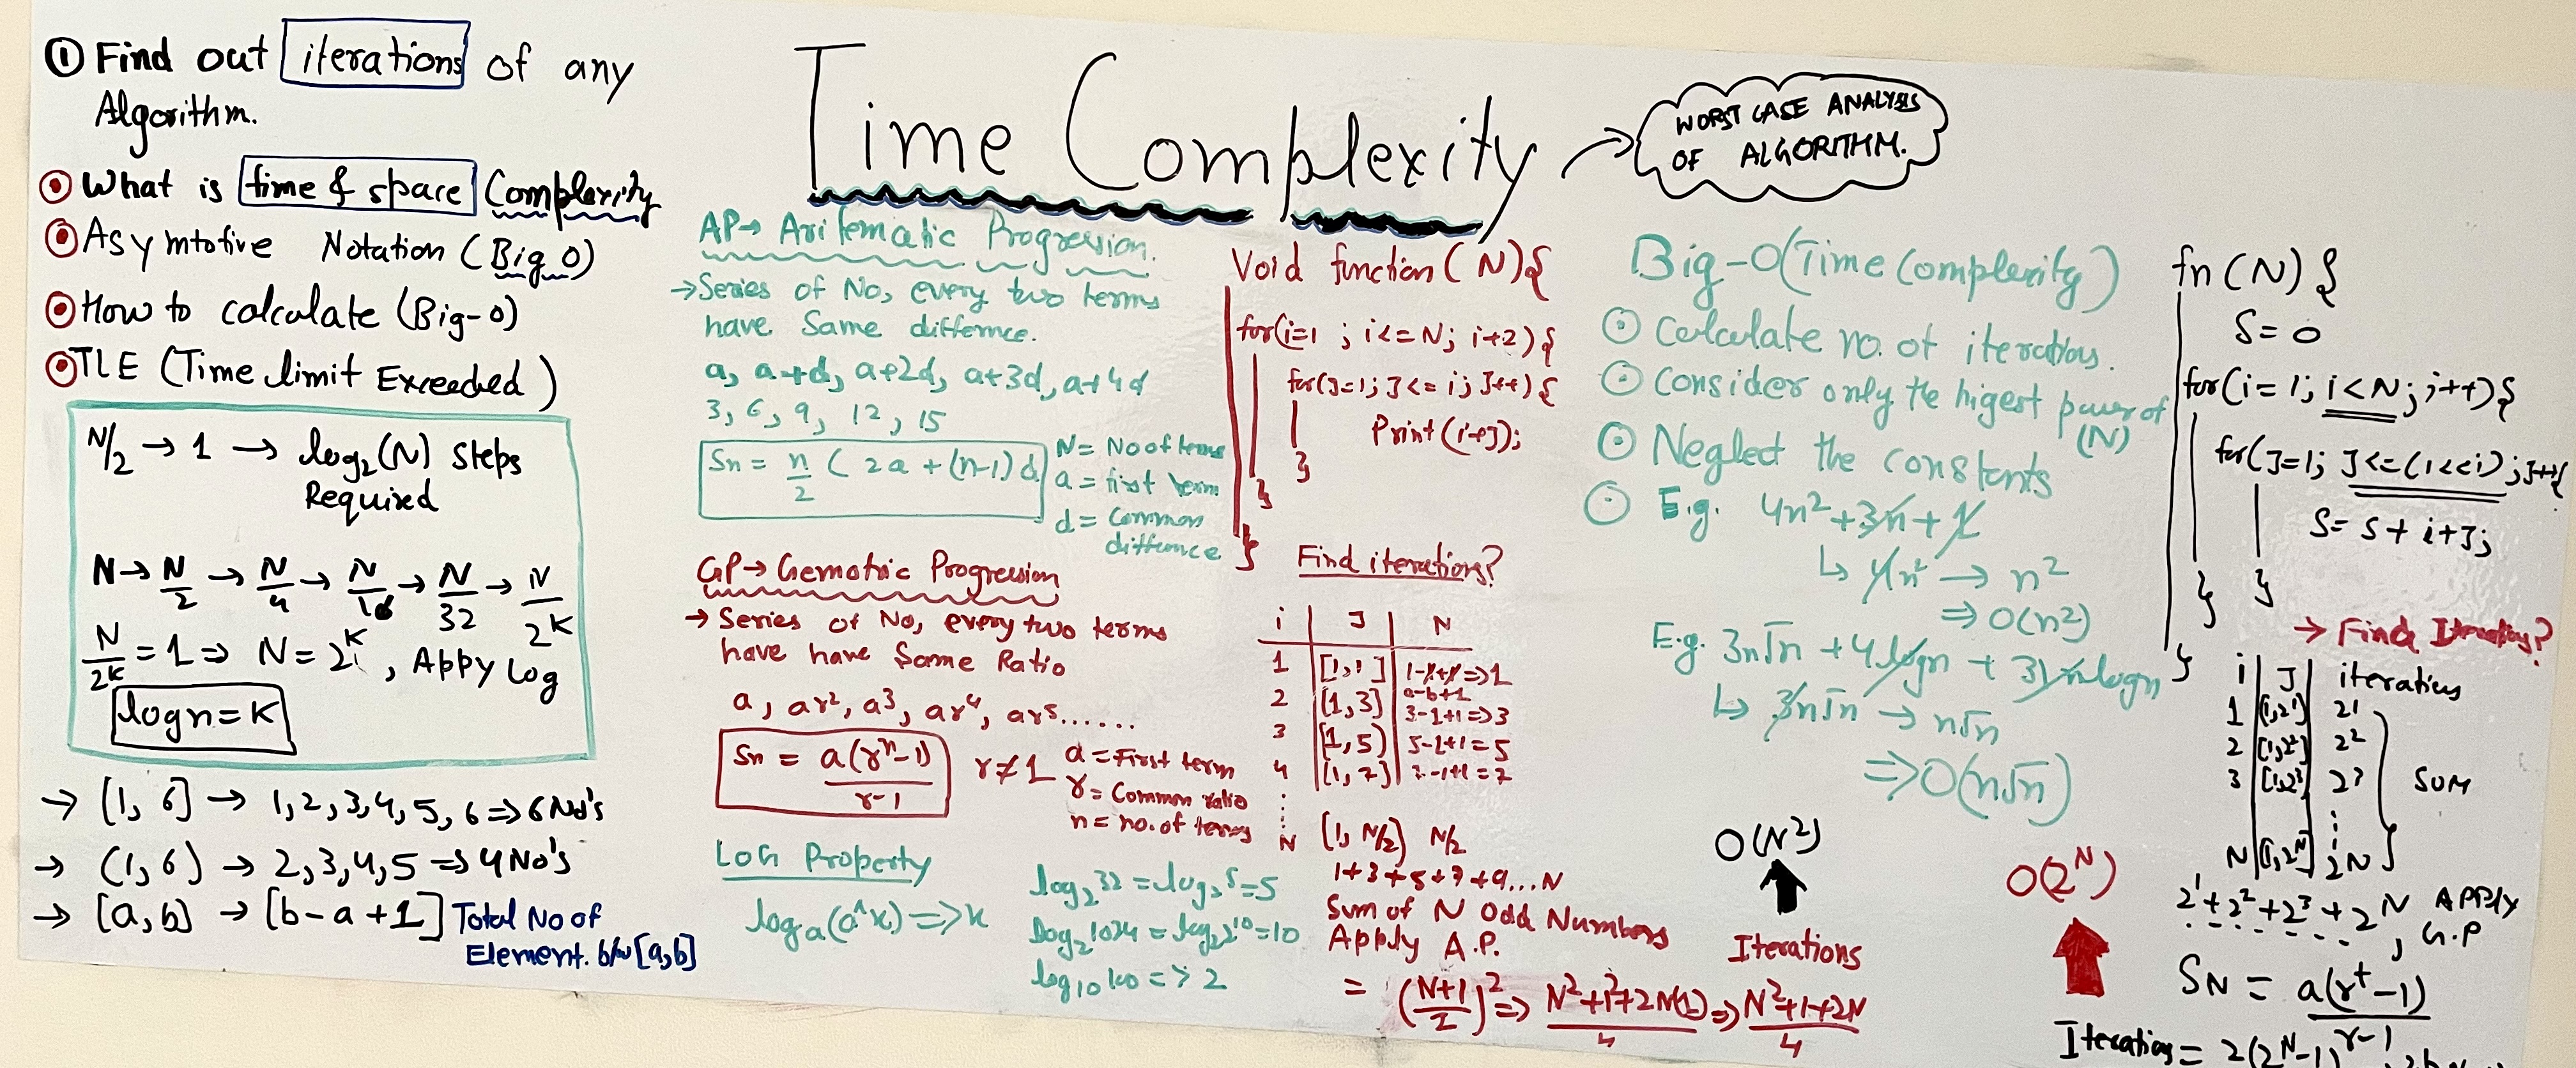 ① Find out iterations of any
Algorithm.
What is time & space Complexity
Asymtotive Notation (Big O)
How to calculate (Big-O)
TLE (Time limit Exceeded)
N/2 → 1 → log₂(N) Steps
Required
N → N/2 → N/4 → N/16 → N/32 → N/2^K
N/2^K = 1 ⇒ N = 2^K, Appy Log
logn = K
→ [1, 6] → 1, 2, 3, 4, 5, 6 ⇒ 6 No's
→ (1, 6) → 2, 3, 4, 5 ⇒ 4 No's
→ [a, b] → [b - a + 1] Total No of
Element. b/w [a, b]
Time Complexity →
WORST CASE ANALYSIS
OF ALGORITHM.
AP → Aritematic Progression.
→ Series of No, every two terms
have Same difference.
a, a+d, a+2d, a+3d, a+4d
3, 6, 9, 12, 15
Sn = n/2 ( 2a + (n-1) d
N = No of terms
a = first term
d = Common
difference
GP → Gemotric Progression
→ Series of No, every two terms
have have Same Ratio
a, ar², a³, ar⁴, ar⁵......
Sn = a(rⁿ-1)/r-1 r≠1
a = First term
r = Common ratio
n = no. of terms
LOG Property
logₐ(a^x) => x
log₂32 = log₂⁵ = 5
log₂1024 = log₂2¹⁰ = 10
log₁₀100 => 2
Void function (N){
for(i=1 ; i<=N; i+2){
for(J=1; J<=i; J++){
Print(i+J);
}
}
}
Find iterations?
i J N
1 [1,1] 1-1+1 => 1
a-b+1
2 [1,3] 3-1+1 => 3
3 [1,5) 5-1+1 = 5
4 [1,7] 7-1+1 = 7
N [1, N/2) N/2
1+3+5+7+9...N
Sum of N Odd Numbers
Apply A.P.
= (N+1/2)² ⇒ N²+1²+2N(1)/4 ⇒ N²+1+2N/4
Iterations
O(N²)
Big-O(Time Complexity)
Calculate no. of iterations.
Consider only the higest power of
(N)
Neglect the constants
E.g. 4n²+3n+1
↳ 4n² → n²
⇒ O(n²)
E.g. 3n√n + 4logn + 31nlogn
↳ 3n√n → n√n
⇒ O(n√n)
fn (N) {
S = 0
for(i = 1; i<N; i++){
for(J=1; J<=(1<<i); J++{
S = S + i+J;
}
}
}
→ Find Iterations?
i J iterations
1 (1,2¹) 2¹
2 [1,2²] 2²
3 [1,2³] 2³
SUM
N [1,2^N] 2N
2¹+2²+2³+2^N, APPly
G.P
SN = a(r^t-1)/r-1
Iterations = 2(2^N-1)
O(2^N)